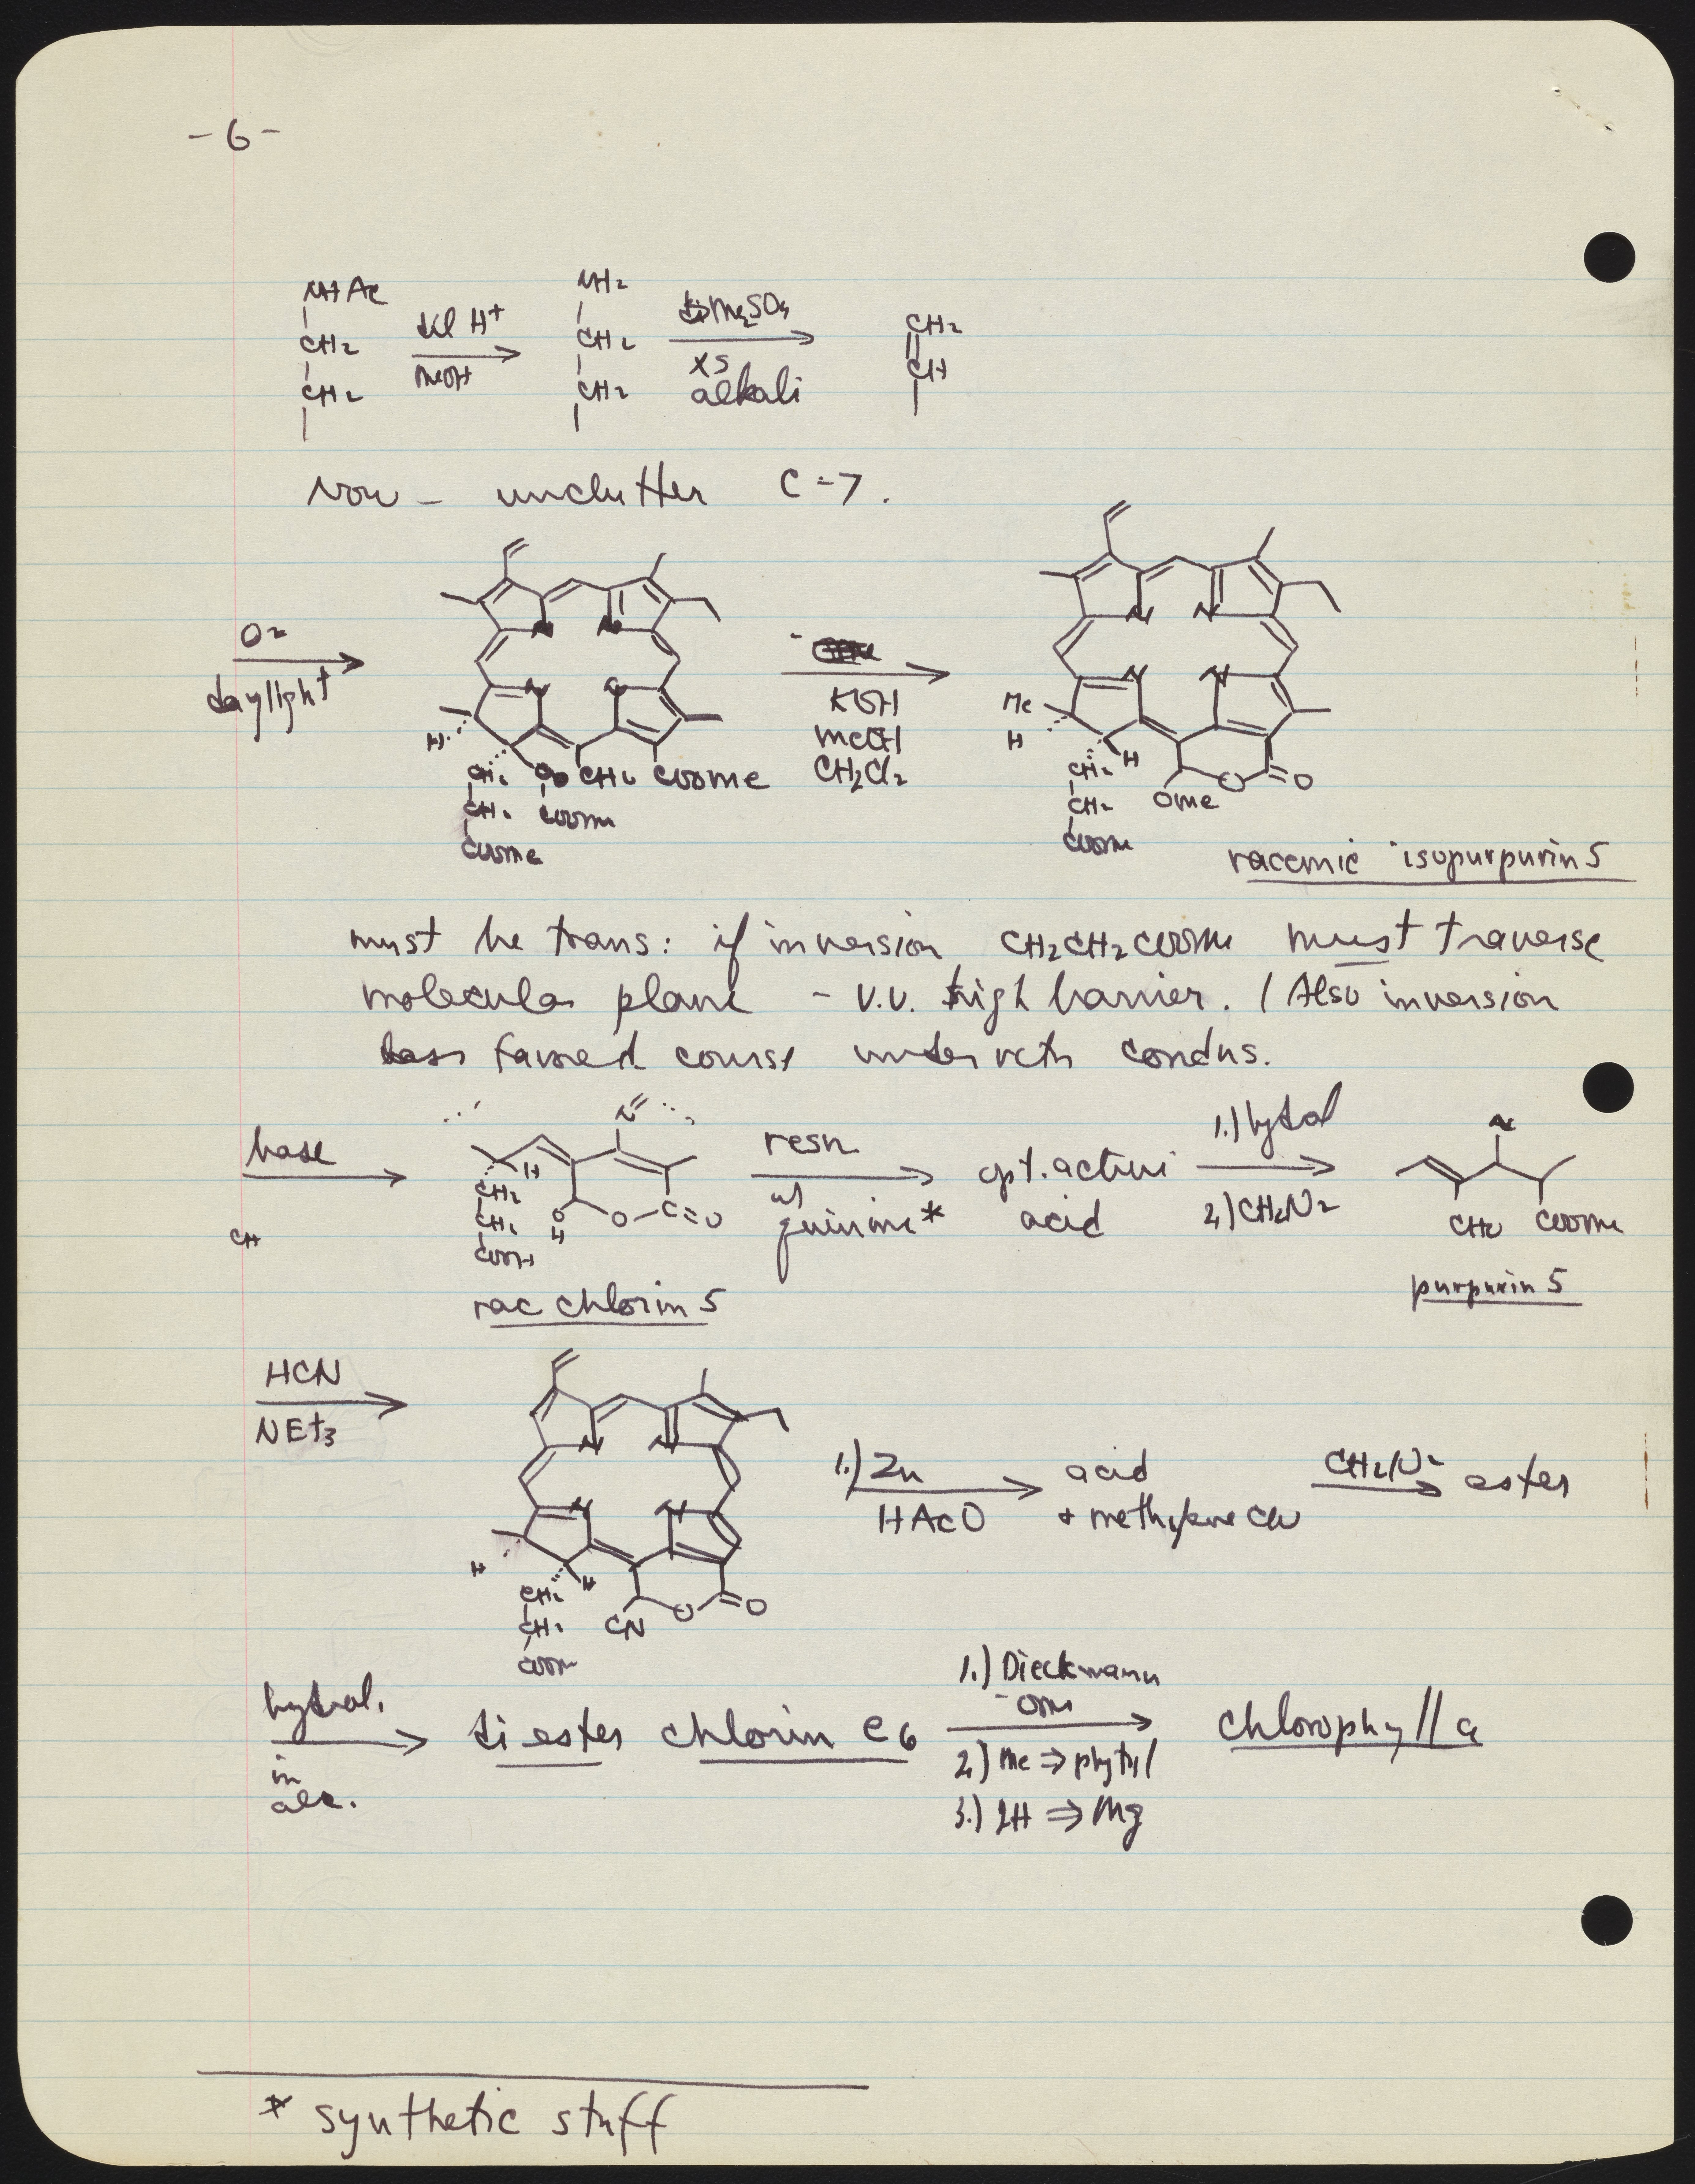 - 6 -
NHAc
CH2
CH2
dil H+
MeOH
NH2
CH2
CH2
Me2SO4
XS
alkali
CH2
CH
Now - unclutter C-7.
O2
daylight
N N
N N
H
CH2 CHO COOMe
CH2 COOMe
COOMe
KOH
MeOH
CH2Cl2
N N
N N
Me
H
H
CH2
CH2
COOMe
OMe
O
O
racemic isopurpurin 5
must be trans: if inversion CH2CH2COOMe must traverse
molecular plane - v.v. high barrier. (Also inversion
less favored course under rctn condns.
base
CH
N
H
CH2
CH2
COOH
O
H
O
C=O
rac chlorin 5
resn
w/
quinine*
opt. active
acid
1.) hydrol
2.) CH2N2
N
CHO COOMe
purpurin 5
HCN
NEt3
N N
N N
H
H
CH2
CH2
COOMe
CN
O
O
1.) Zn
HAcO
acid
+ methylene CN
CH2N2
ester
hydrol.
in
alc.
diester chlorin e6
1.) Dieckmann
-OMe
2.) Me ⇒ phytyl
3.) 2H ⇒ Mg
chlorophyll a
* synthetic stuff